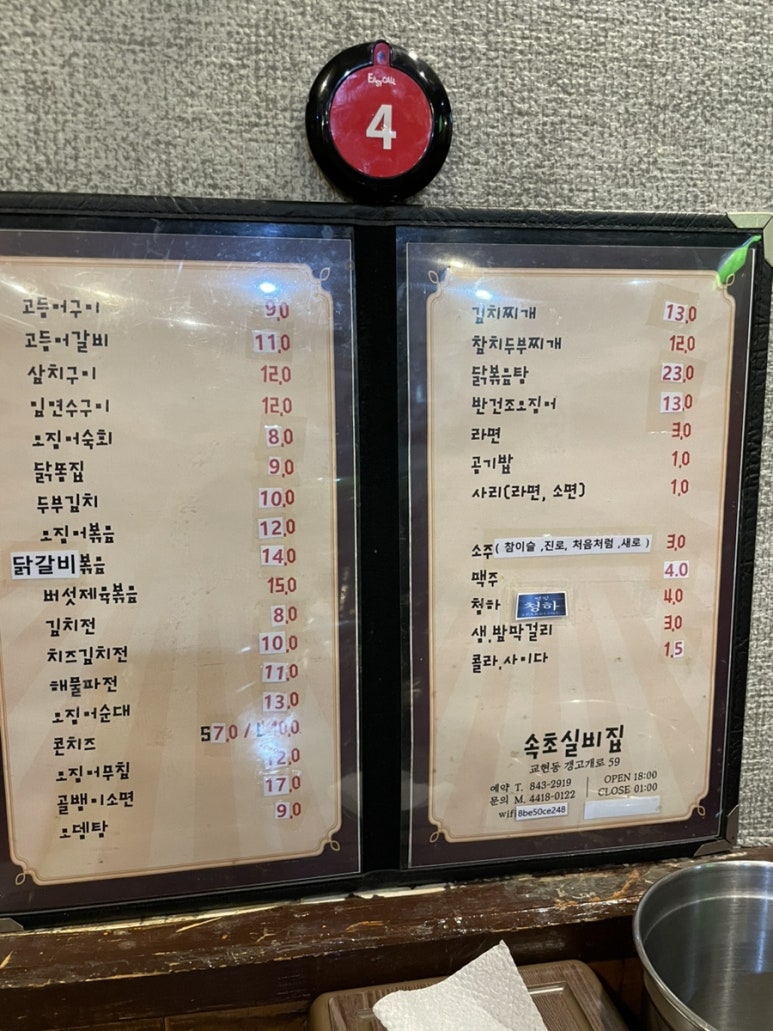 EASYCALL
4
고등어구이 9.0
고등어갈비 11.0
삼치구이 12.0
임연수구이 12.0
오징어숙회 8.0
닭똥집 9.0
두부김치 10.0
오징어볶음 12.0
닭갈비볶음 14.0
버섯제육볶음 15.0
김치전 8.0
치즈김치전 10.0
해물파전 11.0
오징어순대 13.0
콘치즈 S7.0 / L10.0
오징어무침 12.0
골뱅이소면 17.0
오뎅탕 9.0
김치찌개 13.0
참치두부찌개 12.0
닭볶음탕 23.0
반건조오징어 13.0
라면 3.0
공기밥 1.0
사리(라면, 소면) 1.0
소주( 참이슬 ,진로, 처음처럼 ,새로 ) 3.0
맥주 4.0
청하 청하 4.0
생,밤막걸리 3.0
콜라,사이다 1.5
속초실비집
교현동 갱고개로 59
예약 T. 843-2919 OPEN 18:00
문의 M. 4418-0122 CLOSE 01:00
wifi 8be50ce248